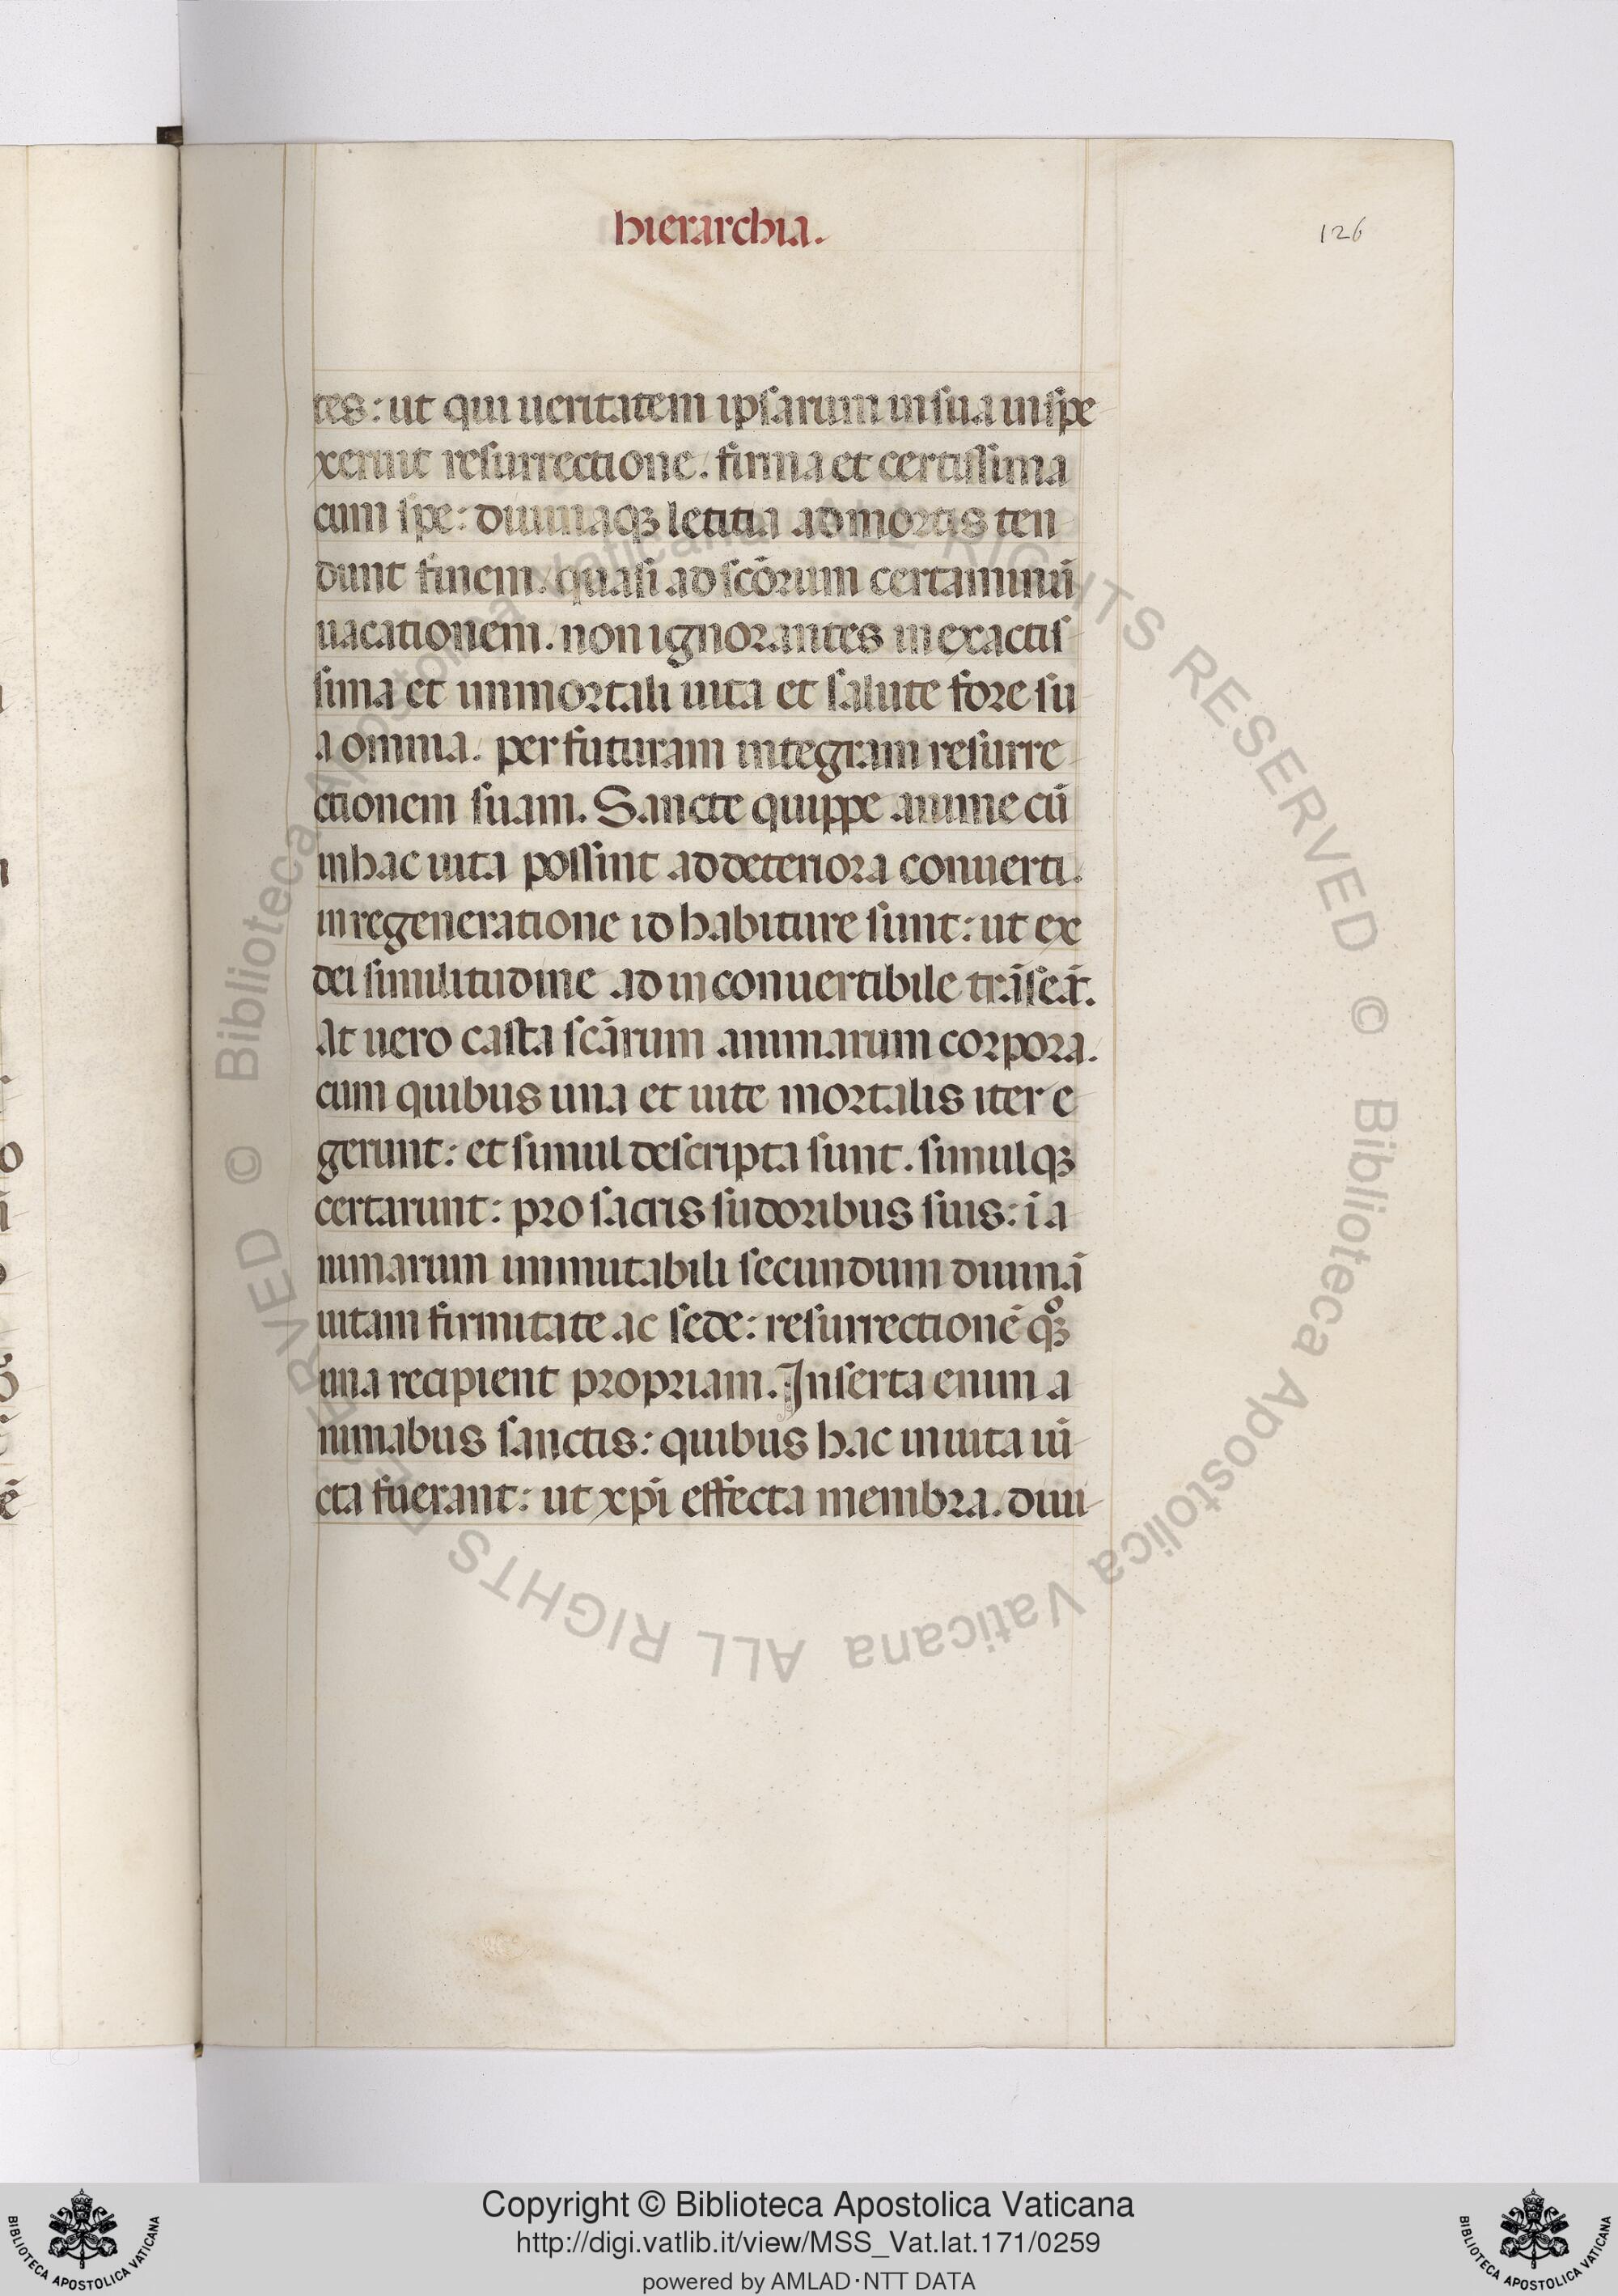 hierarchia.
126
tes: ut qui ueritatem ipsarum in sua inspe
xerint resurrectione. firma et certissima
cum spe: diuinaqꝫ letitia ad mortis ten
dunt finem. quasi ad scõrum certaminũ
uacationem. non ignorantes in exactis
sima et immortali uita et salute fore su
a omnia. per futuram integram resurre
ctionem suam. Sancte quippe anime cũ
in hac uita possint ad deteriora conuerti.
in regeneratione id habiture sunt: ut ex
dei similitudine ad inconuertibile trãseãt.
At uero casta scãrum animarum corpora.
cum quibus una et uite mortalis iter e
gerunt: et simul descripta sunt. simulqꝫ
certarunt: pro sacris sudoribus suis: ĩ a
nimarum immutabili secundum diuinã
uitam firmitate ac sede: resurrectionẽ qͦqꝫ
una recipient propriam. Inserta enim a
nimabus sanctis: quibus hac in uita iũ
cta fuerant: ut xp̃i effecta membra. diui
© Biblioteca Apostolica Vaticana ALL RIGHTS RESERVED
© Biblioteca Apostolica Vaticana ALL RIGHTS RESERVED
Copyright © Biblioteca Apostolica Vaticana
http://digi.vatlib.it/view/MSS_Vat.lat.171/0259
powered by AMLAD·NTT DATA
BIBLIOTECA APOSTOLICA VATICANA
BIBLIOTECA APOSTOLICA VATICANA